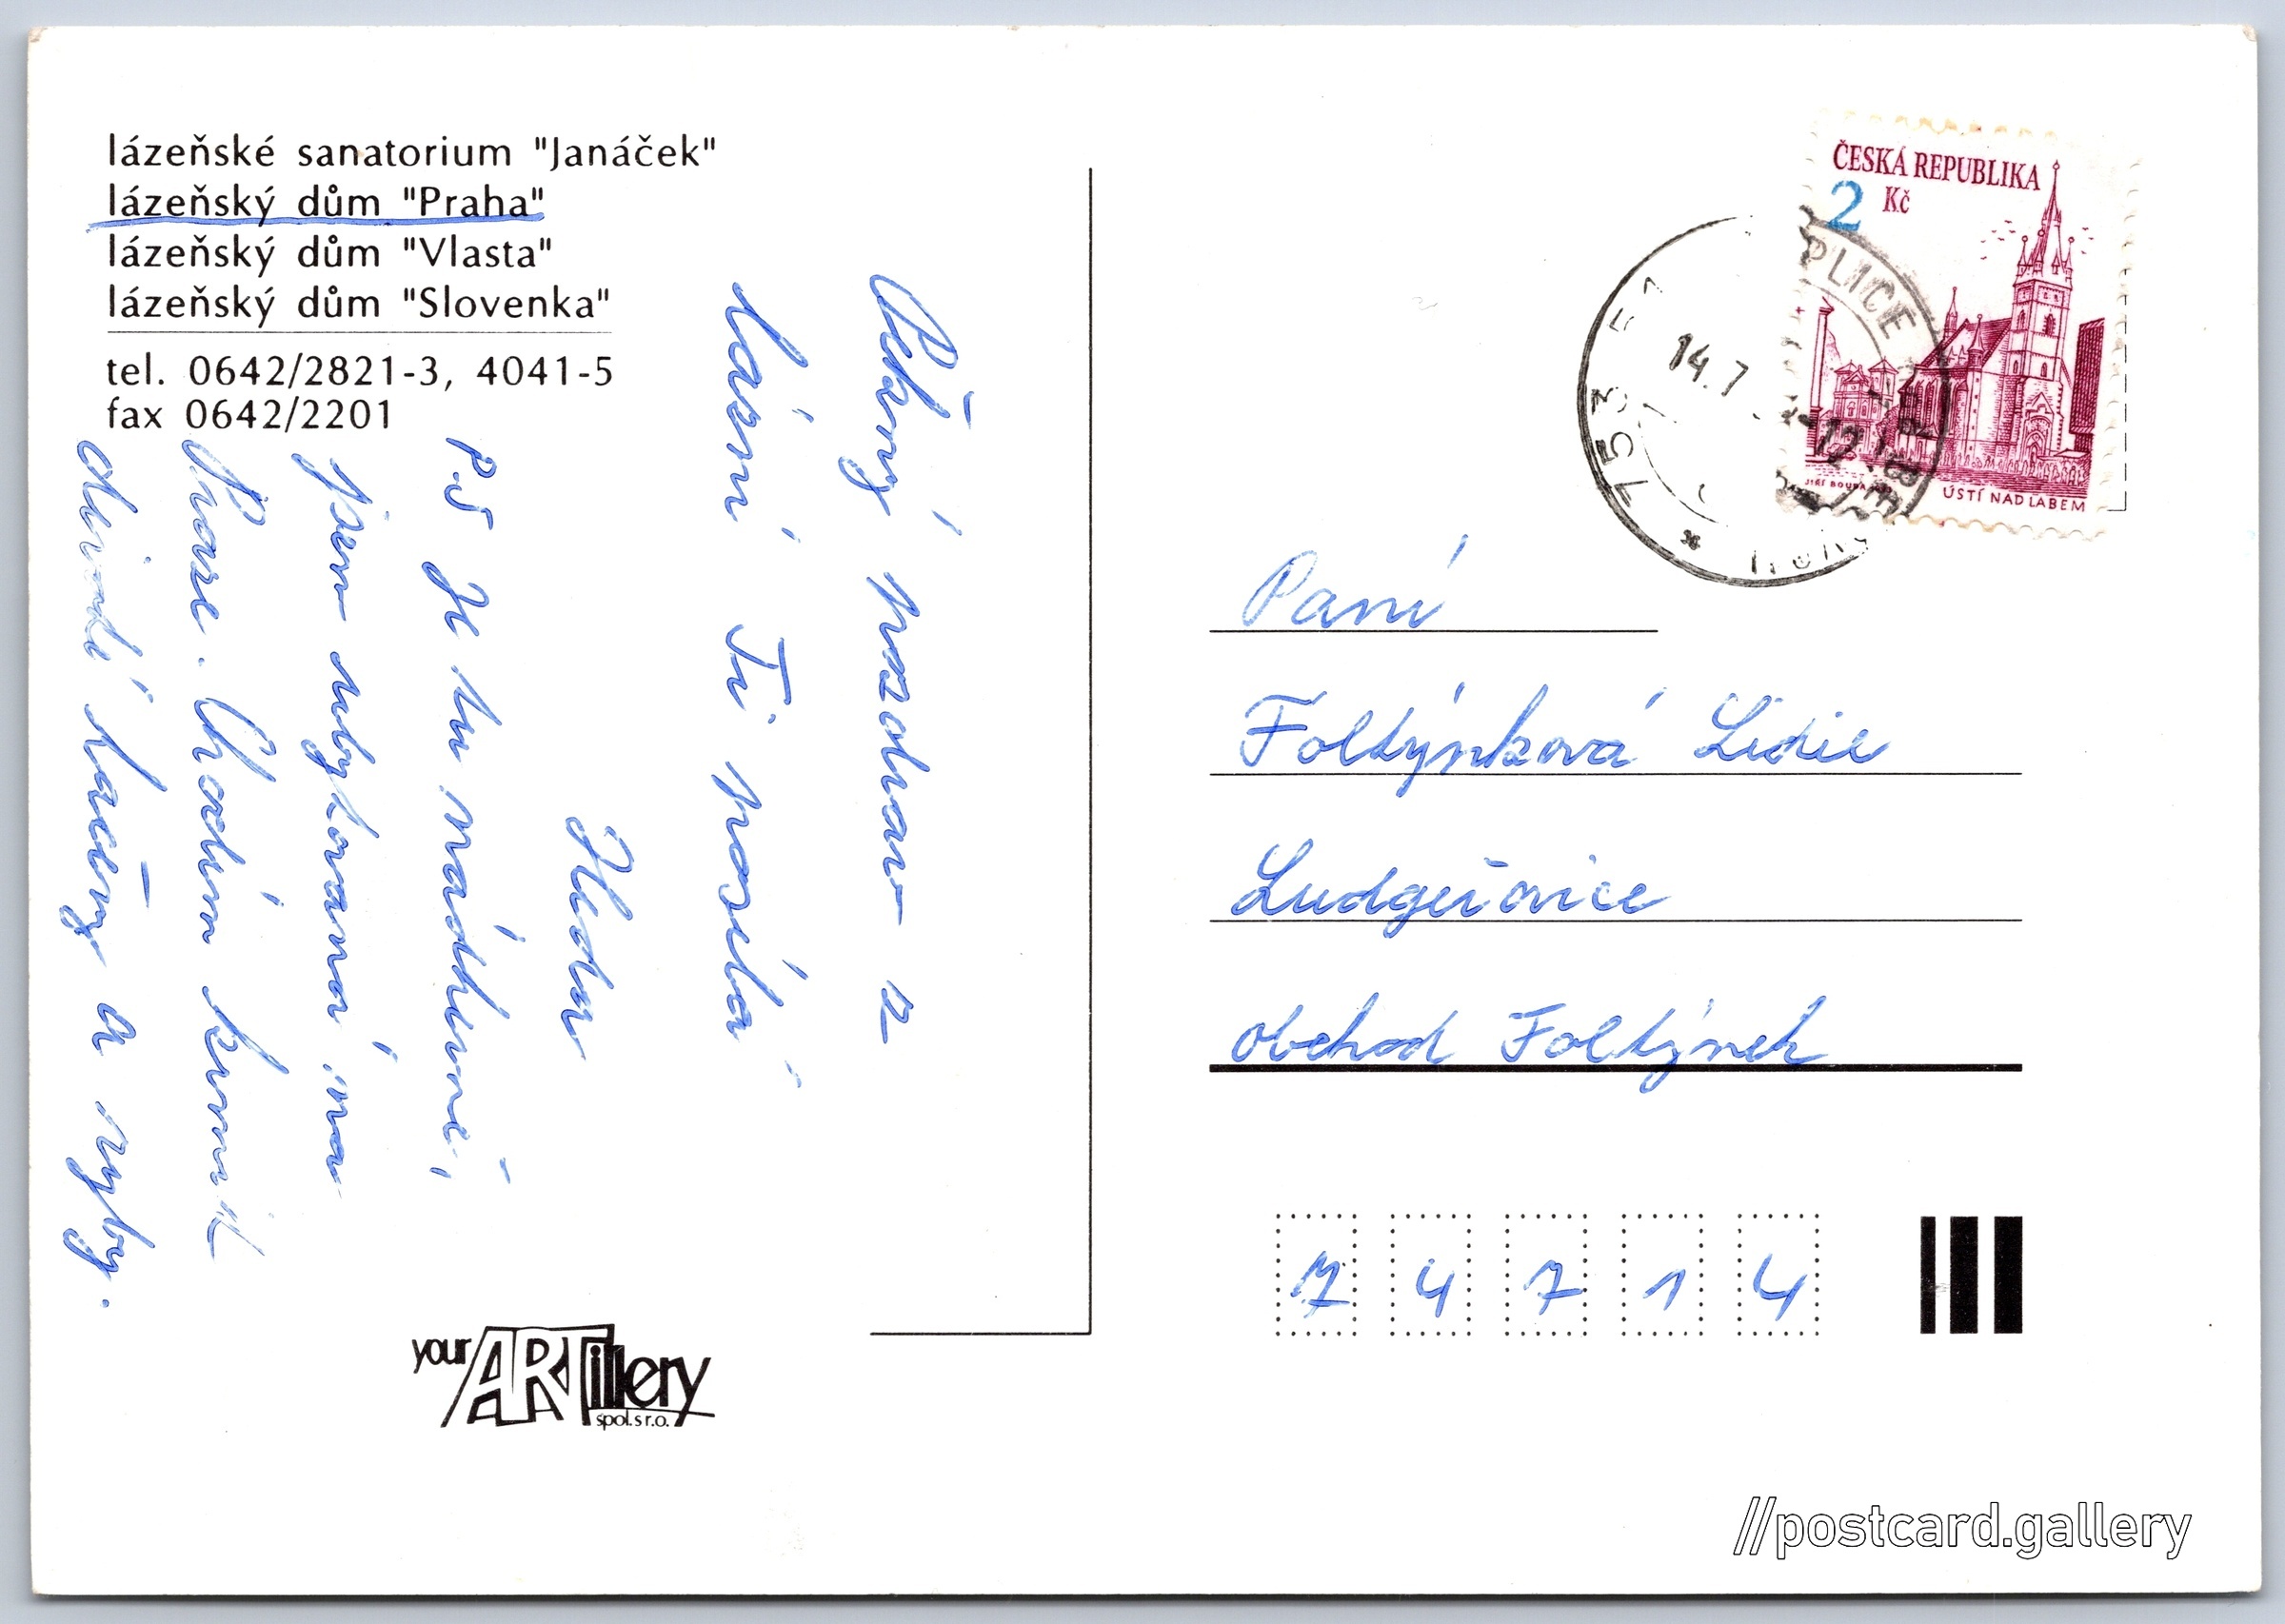 lázeňské sanatorium "Janáček"
lázeňský dům "Praha"
lázeňský dům "Vlasta"
lázeňský dům "Slovenka"
tel. 0642/2821-3, 4041-5
fax 0642/2201
Pěkný pozdrav z
lázní Ti posílá
P.S Je tu nádherně,
jsem ubytovaná na
Praze. Chodím krmit
divoké kačeny a ryby.
your ARTillery
spol. s r.o.
ČESKÁ REPUBLIKA
2 Kč
JIŘÍ BOUDA
ÚSTÍ NAD LABEM
753 51
14.7
-12
Paní
Foltýnková Lidie
Ludgeřovice
obchod Foltýnek
74714
//postcard.gallery